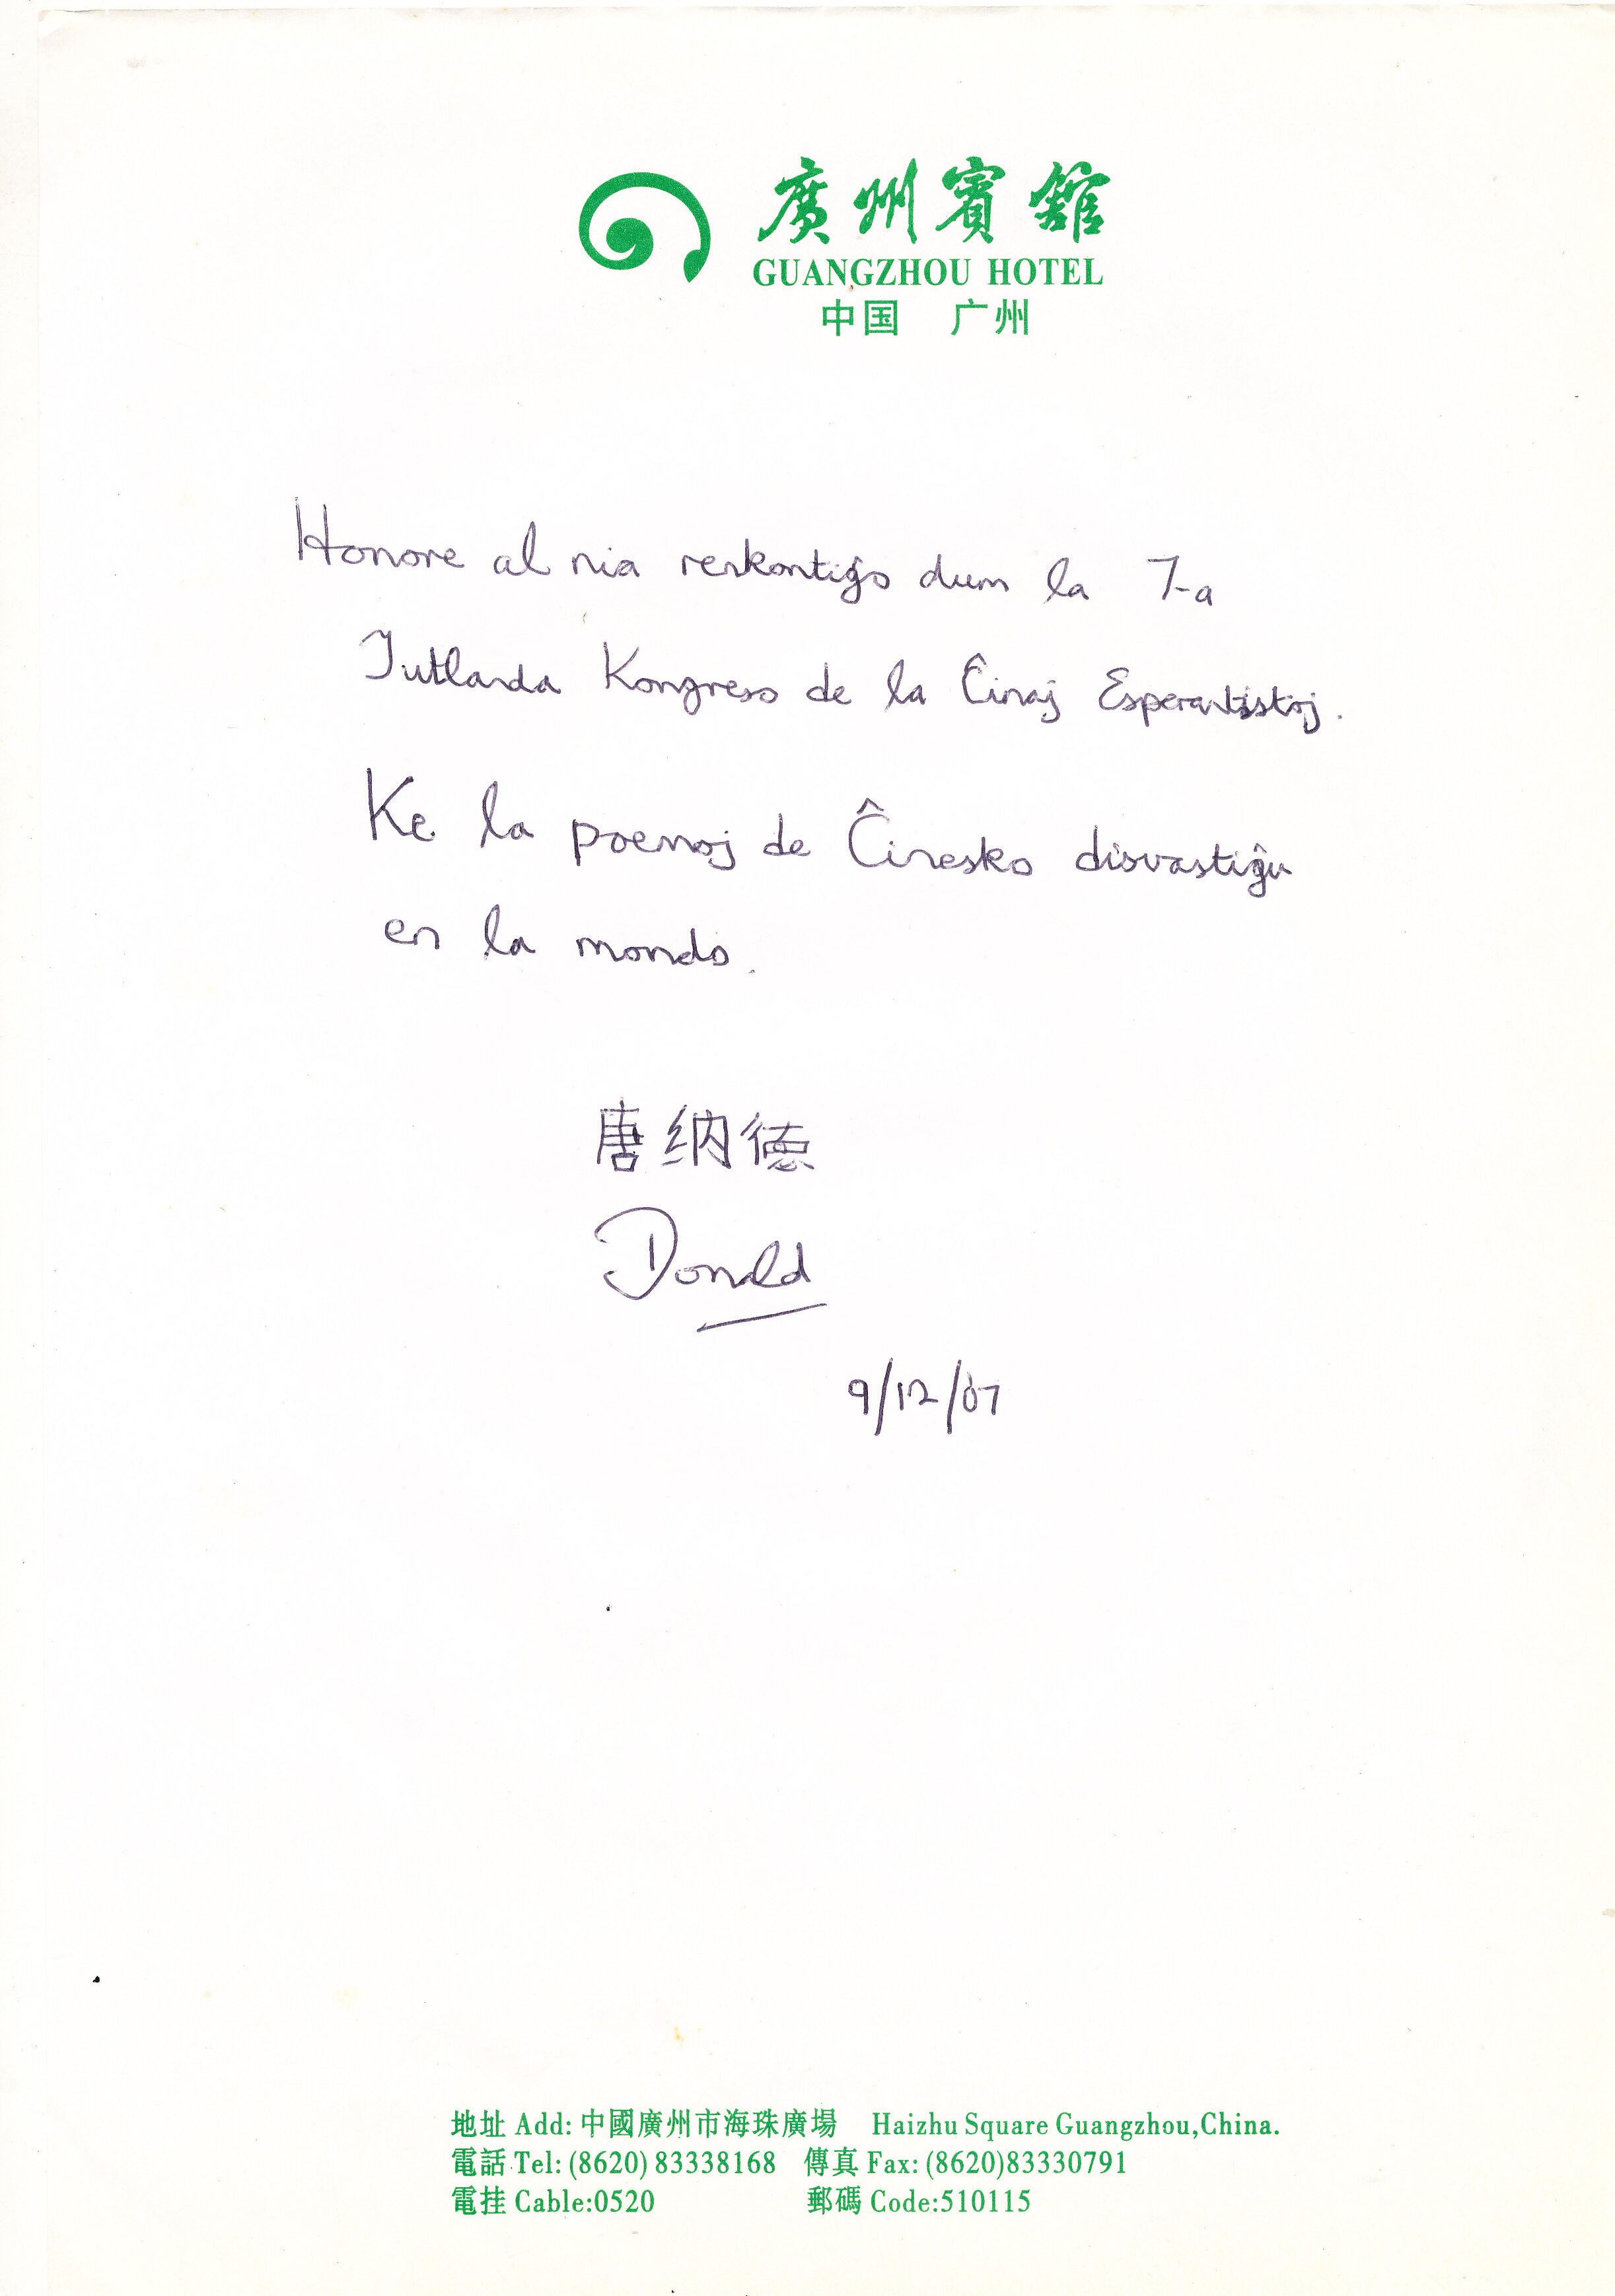 廣州賓館
GUANGZHOU HOTEL
中国 广州
Honore al nia renkontiĝo dum la 7-a
Tutlanda Kongreso de la Ĉinaj Esperantistoj.
Ke la poemoj de Ĉinesko disvastiĝu
en la mondo.
唐纳德
Donald
9/12/07
地址 Add: 中國廣州市海珠廣場 Haizhu Square Guangzhou,China.
電話 Tel: (8620) 83338168 傳真 Fax: (8620)83330791
電挂 Cable:0520 郵碼 Code:510115